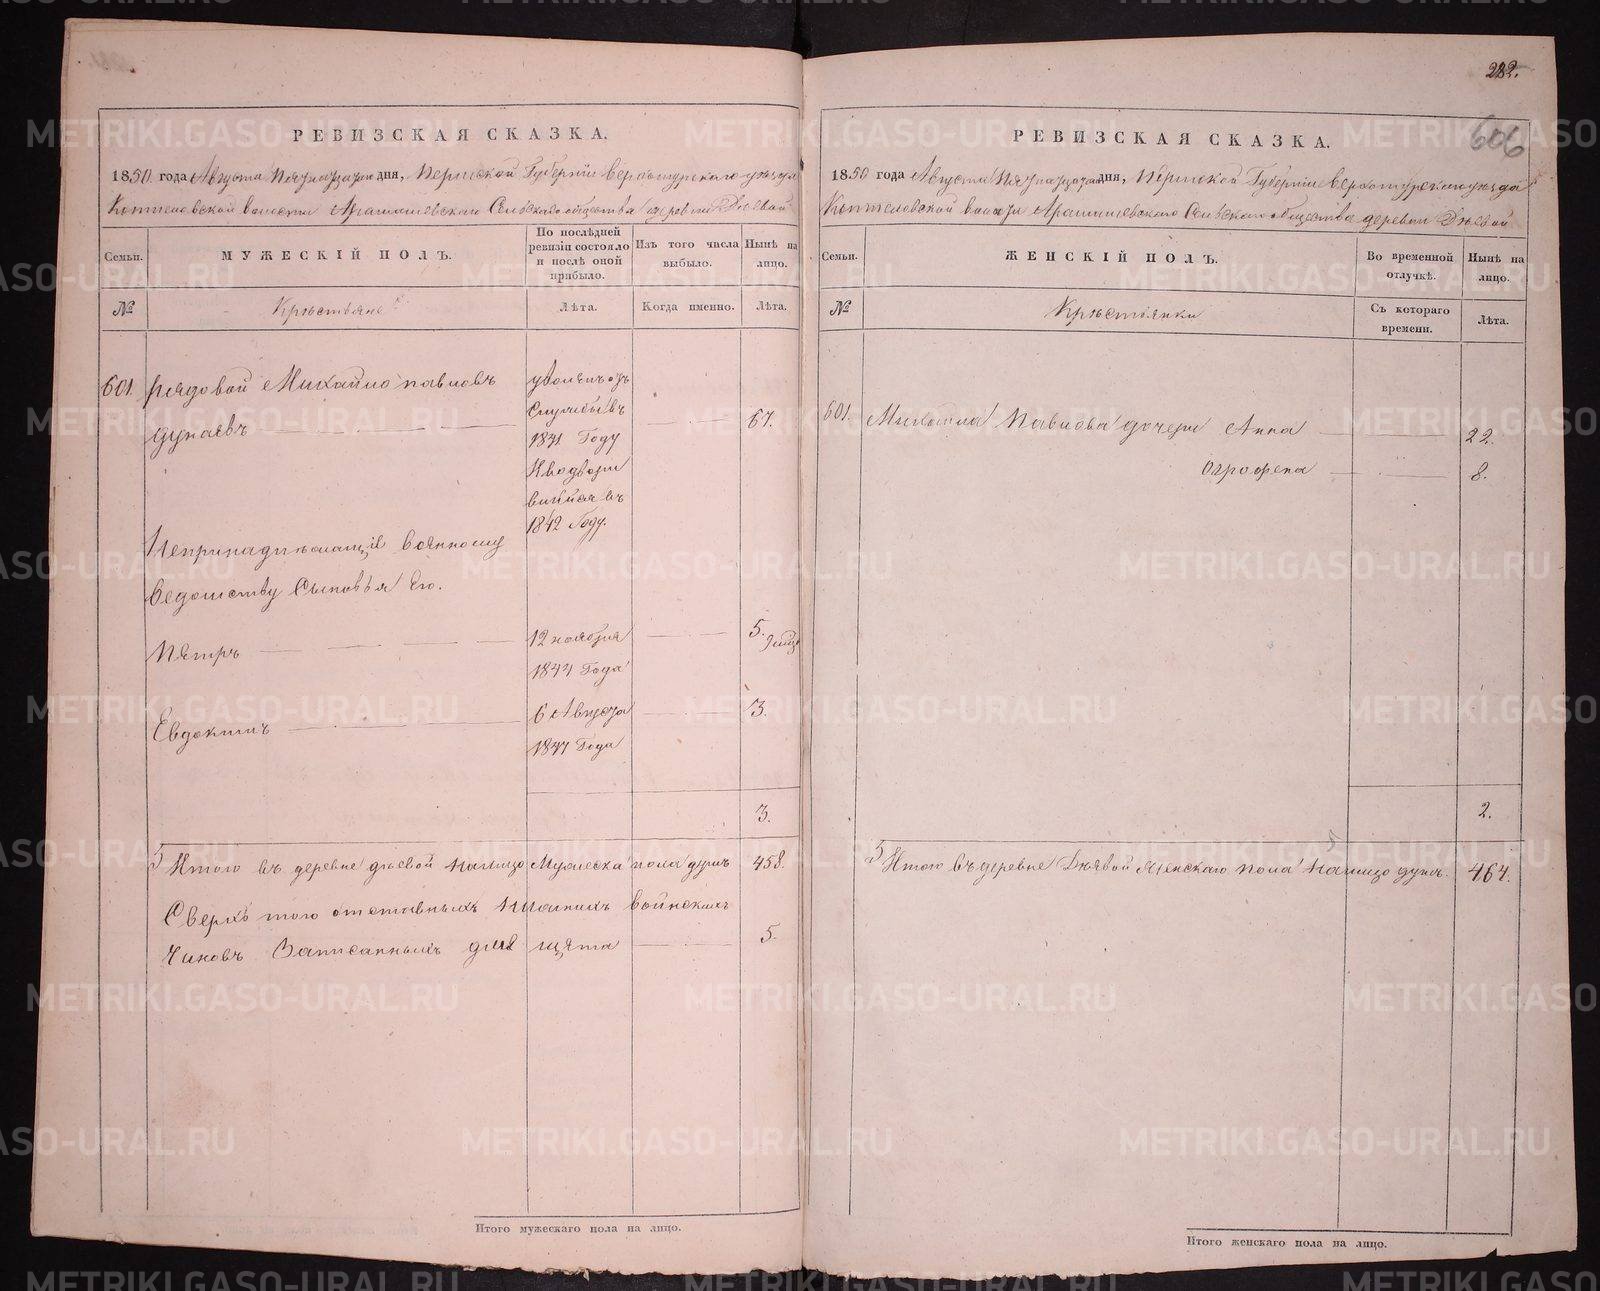 282.
606
РЕВИЗСКАЯ СКАЗКА.
1850 года Августа Пятнадцатого дня, Пермской Губернiи Верхотурского уезда
Коптеловской волости Арамашевского Сельскаго общества деревни Дѣевой
Семьи.
МУЖЕСКIЙ ПОЛЪ.
По послѣдней ревизiи состояло и послѣ оной прибыло.
Изъ того числа выбыло.
Нынѣ на лицо.
№
Крѣстьяне
Лѣта.
Когда именно.
Лѣта.
601. Рядовой Михайло павловъ
дунаевъ 67.
уволенъ отъ
Службы въ
1841 Году
Иводвори
вшiйся въ
1842 Году.
Непринадлежащiе военному
ведомству Сыновья Его.
Пятръ 12 ноября
1844 Года
5. 9 мѣся
Евдокимъ 6 Августа
1847 Года
3.
3.
Итого въ деревне дѣевой налицо Мужеска пола душъ 458.
Сверхъ того отставныхъ Нижнихъ воинскихъ
Чиновъ Записанныхъ для щета 5.
Итого мужескаго пола на лицо.
РЕВИЗСКАЯ СКАЗКА.
1850 года Августа Пятнадцатого дня, Пермской Губернiи верхотурского уезда
Коптеловской волости Арамашевского Сельскаго общества деревни Дѣевой
Семьи.
ЖЕНСКIЙ ПОЛЪ.
Во временной отлучкѣ.
Нынѣ на лицо.
№
Крѣстьянки
Съ котораго времени.
Лѣта.
601. Михайла Павлова дочери Анна 22.
Огрофена 8.
2.
Итого въ деревне Дѣевой Женскаго пола налицо душъ. 464.
Итого женскаго пола на лицо.
METRIKI.GASO-URAL.RU